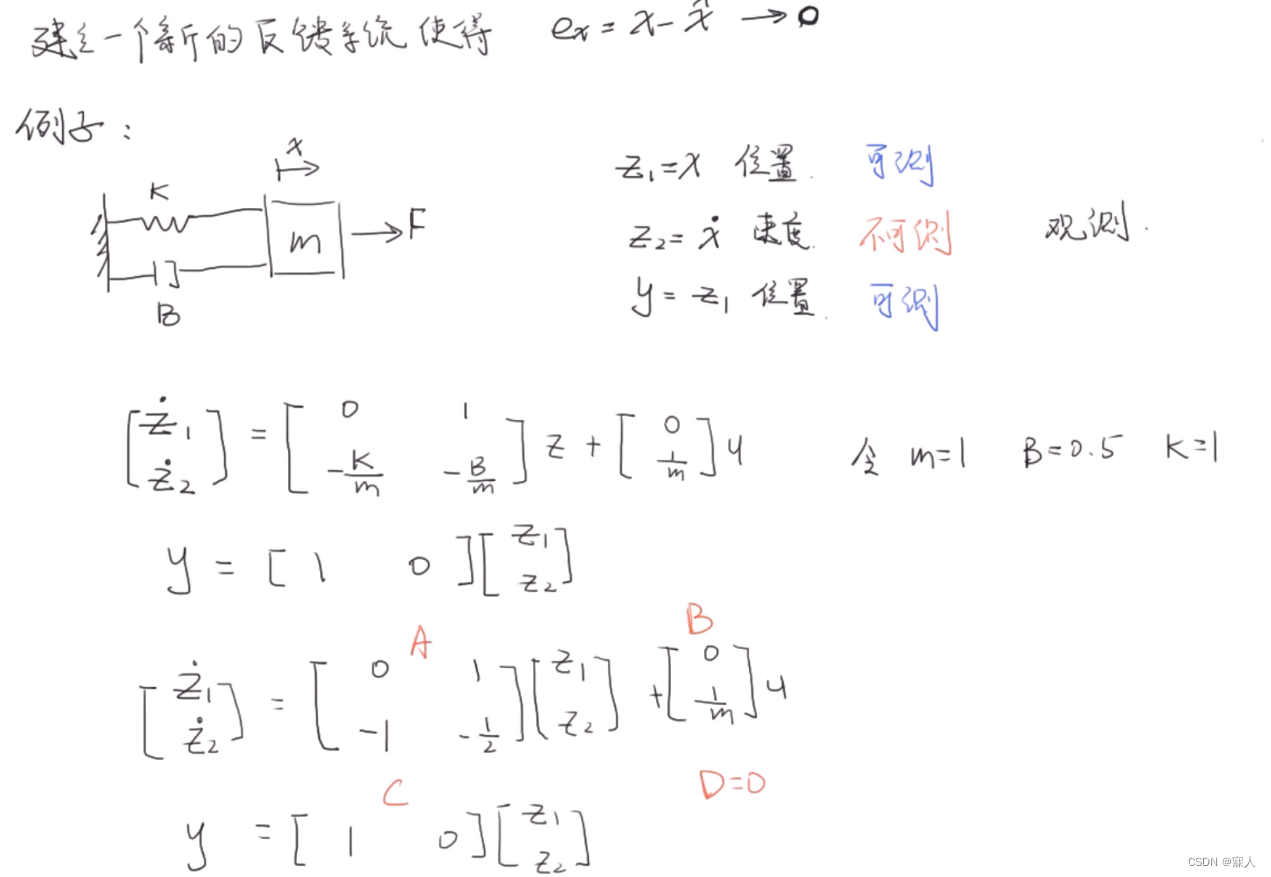 建立一个新的反馈系统 使得 eₓ = x - x̂ → 0
例子：
x
K
m → F
B
z₁ = x 位置 可测
z₂ = ẋ 速度 不可测 观测
y = z₁ 位置 可测
[ż₁ ; ż₂] = [0 1 ; -K/m -B/m] z + [0 ; 1/m] u 令 m=1 B=0.5 K=1
y = [1 0] [z₁ ; z₂]
A B
[ż₁ ; ż₂] = [0 1 ; -1 -1/2] [z₁ ; z₂] + [0 ; 1/m] u
C D=0
y = [1 0] [z₁ ; z₂]
CSDN @寐人